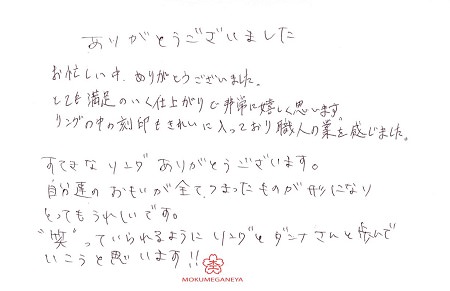 ありがとうございました
お忙しい中、ありがとうございました。
とても満足のいく仕上がりで非常に嬉しく思います
リングの中の刻印もきれいに入っており職人の"業"を感じました。
すてきなリングありがとうございます。
自分達のおもいが全てつまったものが形になり
とってもうれしいです。
"笑"っていられるようにリングとダンナさんと歩んで
いこうと思います!!
MOKUMEGANEYA